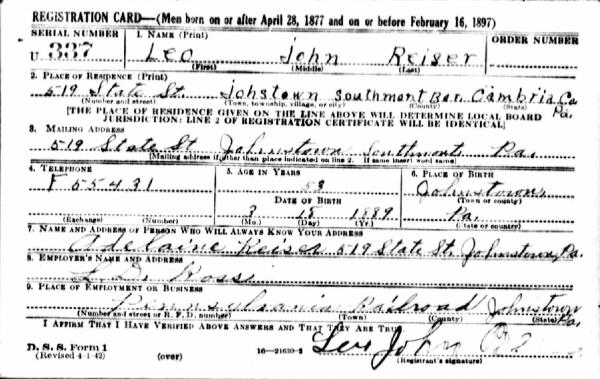 REGISTRATION CARD—(Men born on or after April 28, 1877 and on or before February 16, 1897)
SERIAL NUMBER 1. NAME (Print) ORDER NUMBER
U 337 Leo John Reiser
(First) (Middle) (Last)
2. PLACE OF RESIDENCE (Print)
519 State St. Johstown Southmont Bor. Cambria Co. Pa.
(Number and street) (Town, township, village, or city) (County) (State)
[THE PLACE OF RESIDENCE GIVEN ON THE LINE ABOVE WILL DETERMINE LOCAL BOARD
JURISDICTION: LINE 2 OF REGISTRATION CERTIFICATE WILL BE IDENTICAL]
3. MAILING ADDRESS
519 State St Johnstown Southmont Pa.
[Mailing address if other than place indicated on line 2. If same insert word same]
4. TELEPHONE 5. AGE IN YEARS 6. PLACE OF BIRTH
F 55431 53 Johnstown
DATE OF BIRTH (Town or county)
3 18 1889 Pa.
(Exchange) (Number) (Mo.) (Day) (Yr.) (State or country)
7. NAME AND ADDRESS OF PERSON WHO WILL ALWAYS KNOW YOUR ADDRESS
Adelaine Reiser 519 State St. Johnstown, Pa.
8. EMPLOYER'S NAME AND ADDRESS
L. D. Rossi
9. PLACE OF EMPLOYMENT OR BUSINESS
Pennsylvania Railroad Johnstown Pa.
(Number and street or R. F. D. number) (Town) (County) (State)
I AFFIRM THAT I HAVE VERIFIED ABOVE ANSWERS AND THAT THEY ARE TRUE.
D. S. S. Form 1 Leo John
(Revised 4-1-42) (over) 16—21630-2 (Registrant's signature)